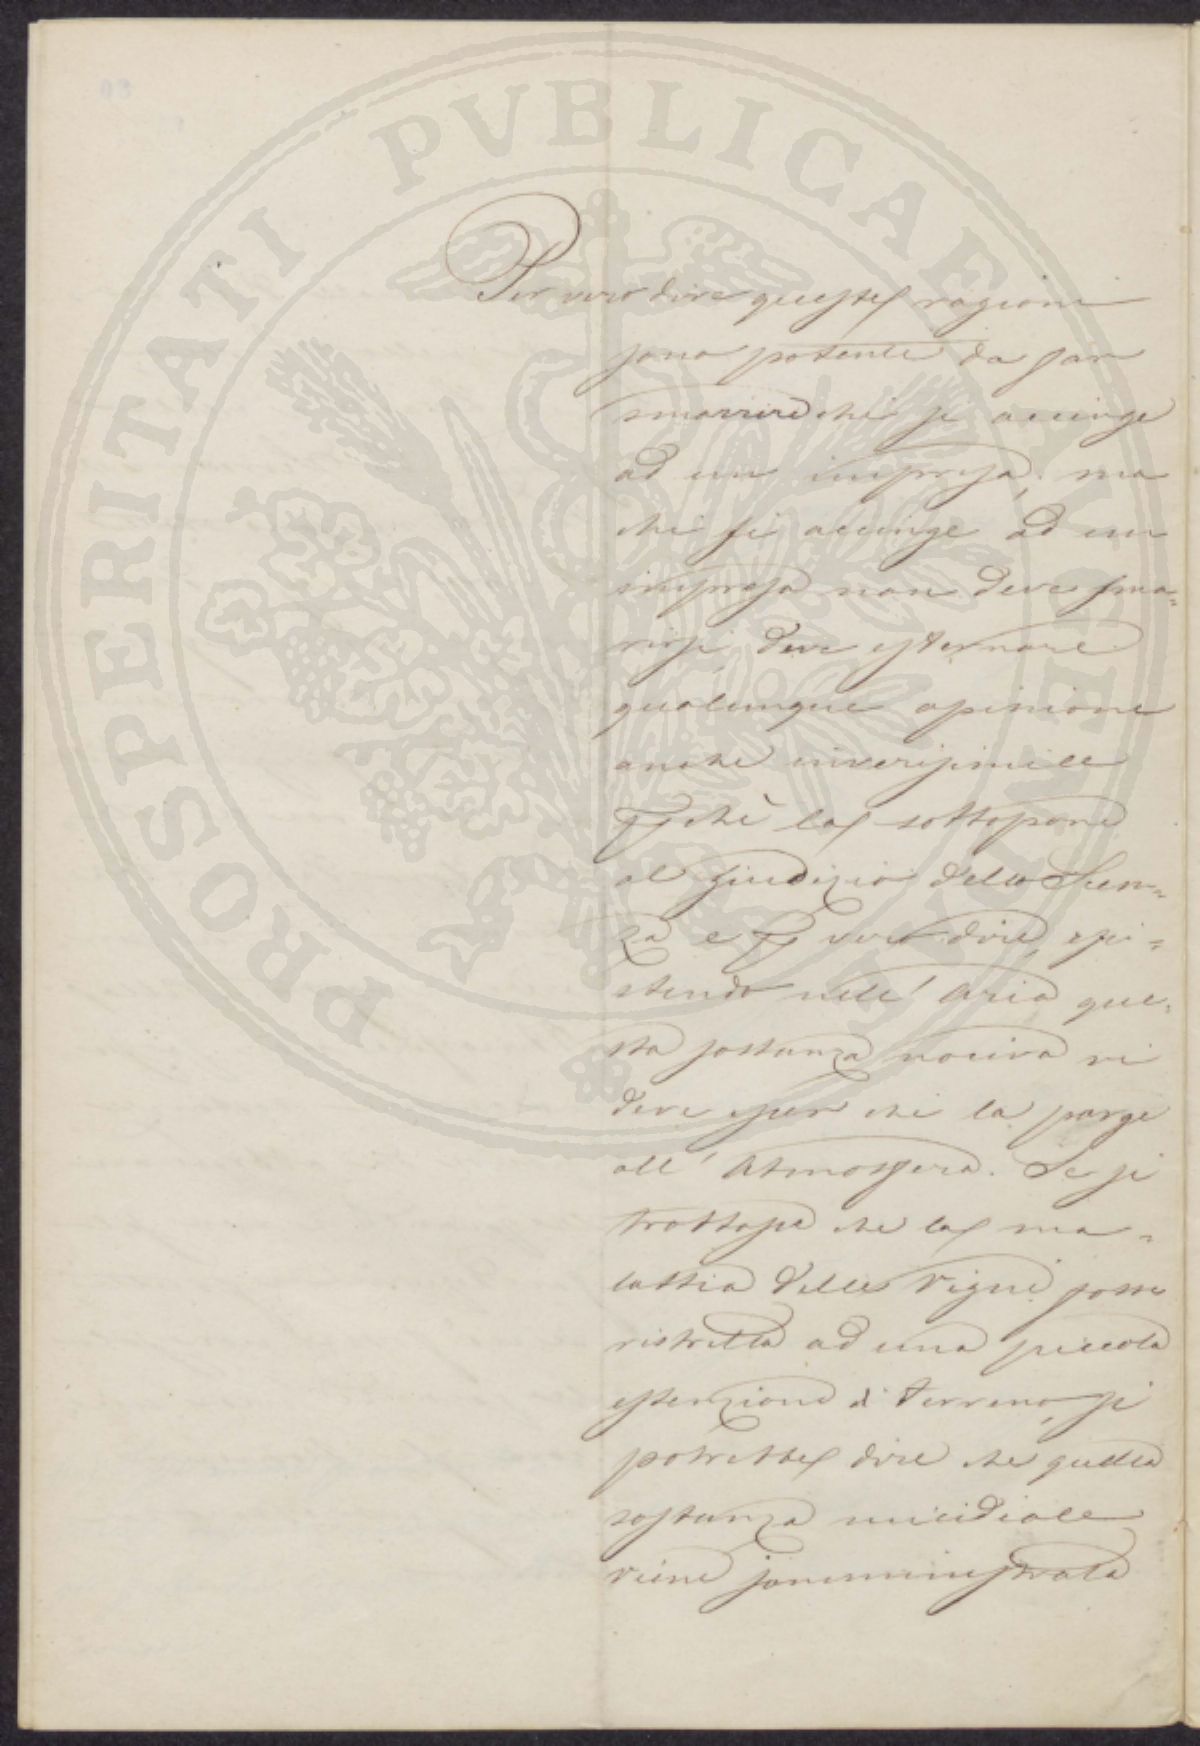 PROSPERITATI PVBLICAE AVGENDAE
Per vero dire queste ragioni
sono potente da far
smarrire chi si accinge
ad un impresa; ma
chi si accinge ad un
impresa non deve sma=
rirsi, deve esternare
qualunque opinione
anche inverisimile
chè la sottopone
al giudizio della Scien=
za e vero dire, esi=
stendo nell' Aria que=
sta sostanza nociva vi
deve esser chi la porge
all' Atmosfera. Se si
trattasse che la ma=
lattia delle Vigne fosse
ristretta ad una piccola
estenzione di terreno, si
potrebbe dire che quella
sostanza micidiale
viene somministrata